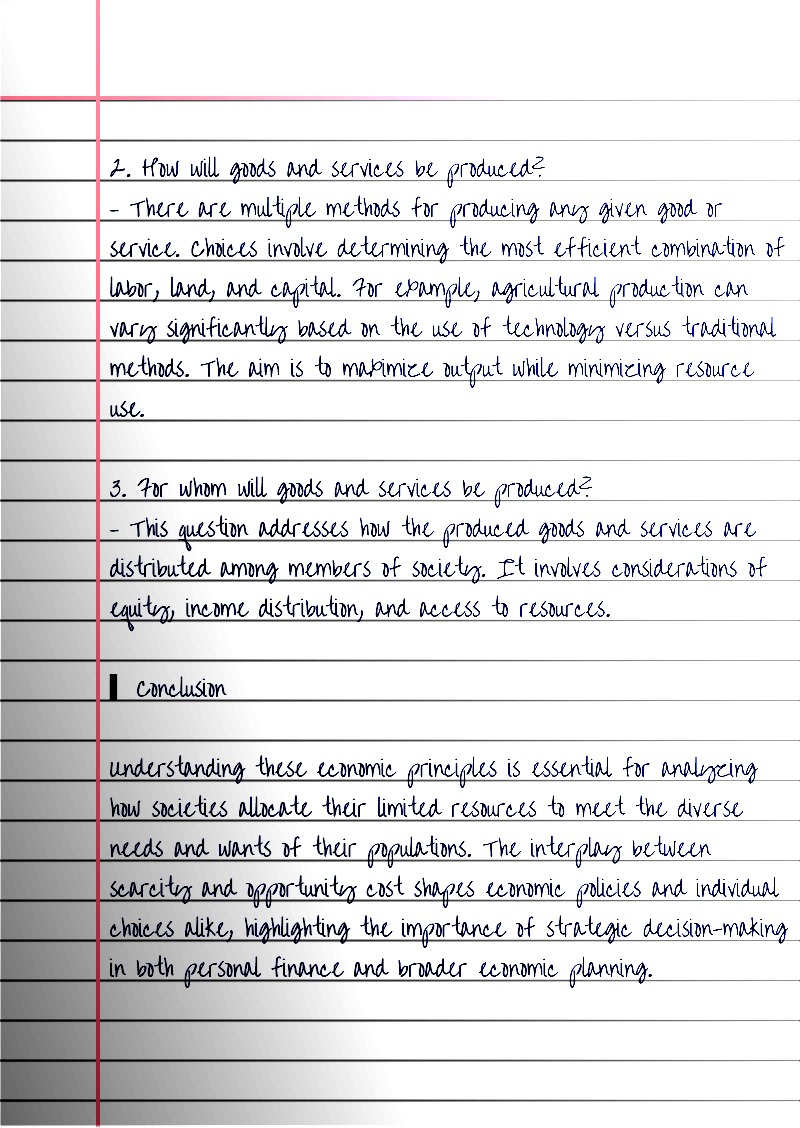 2. How will goods and services be produced?
- There are multiple methods for producing any given good or
service. Choices involve determining the most efficient combination of
labor, land, and capital. For example, agricultural production can
vary significantly based on the use of technology versus traditional
methods. The aim is to maximize output while minimizing resource
use.
3. For whom will goods and services be produced?
- This question addresses how the produced goods and services are
distributed among members of society. It involves considerations of
equity, income distribution, and access to resources.
Conclusion
Understanding these economic principles is essential for analyzing
how societies allocate their limited resources to meet the diverse
needs and wants of their populations. The interplay between
scarcity and opportunity cost shapes economic policies and individual
choices alike, highlighting the importance of strategic decision-making
in both personal finance and broader economic planning.